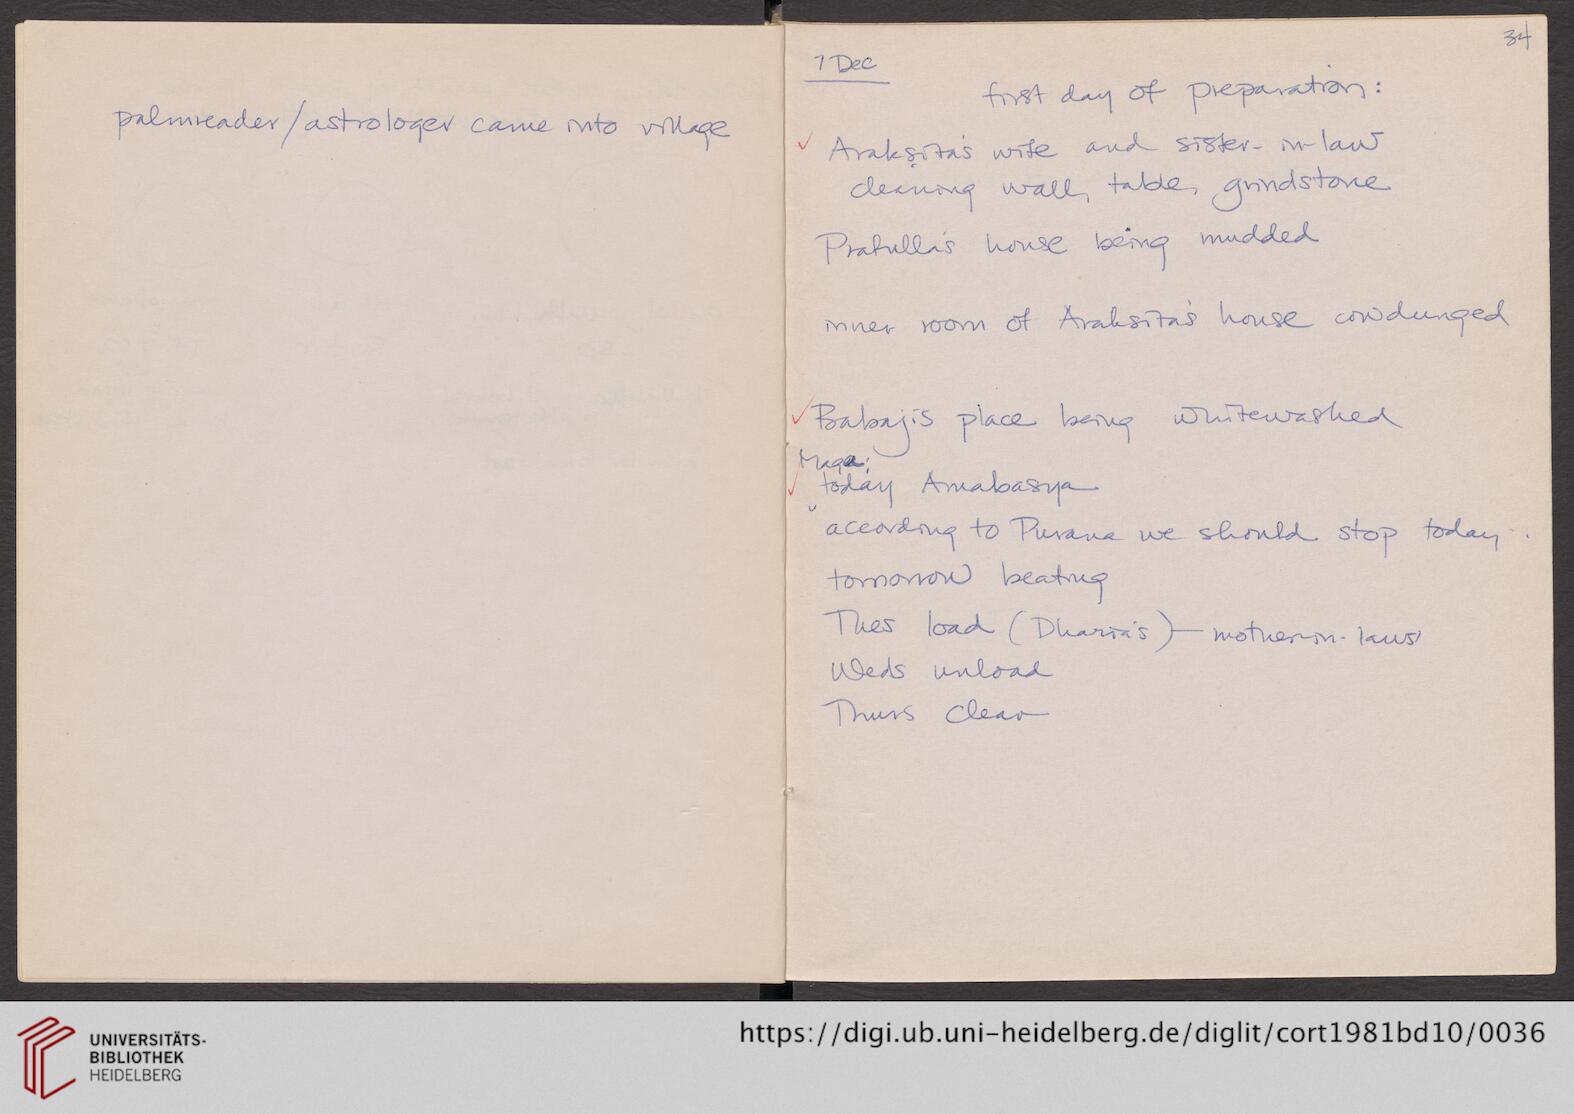 palmreader/astrologer came into village
34
7 Dec
first day of preparation:
Arakṣita's wife and sister-in-law
cleaning wall, table, grindstone
Prafulla's house being mudded
inner room of Araksita's house cowdunged
Babaji's place being whitewashed
Maga:
today Amabasya
according to Purana we should stop today.
tomorrow beating
Tues load (Dharia's) — mother-in-laws'
Weds unload
Thurs clear
UNIVERSITÄTS-
BIBLIOTHEK
HEIDELBERG
https://digi.ub.uni-heidelberg.de/diglit/cort1981bd10/0036